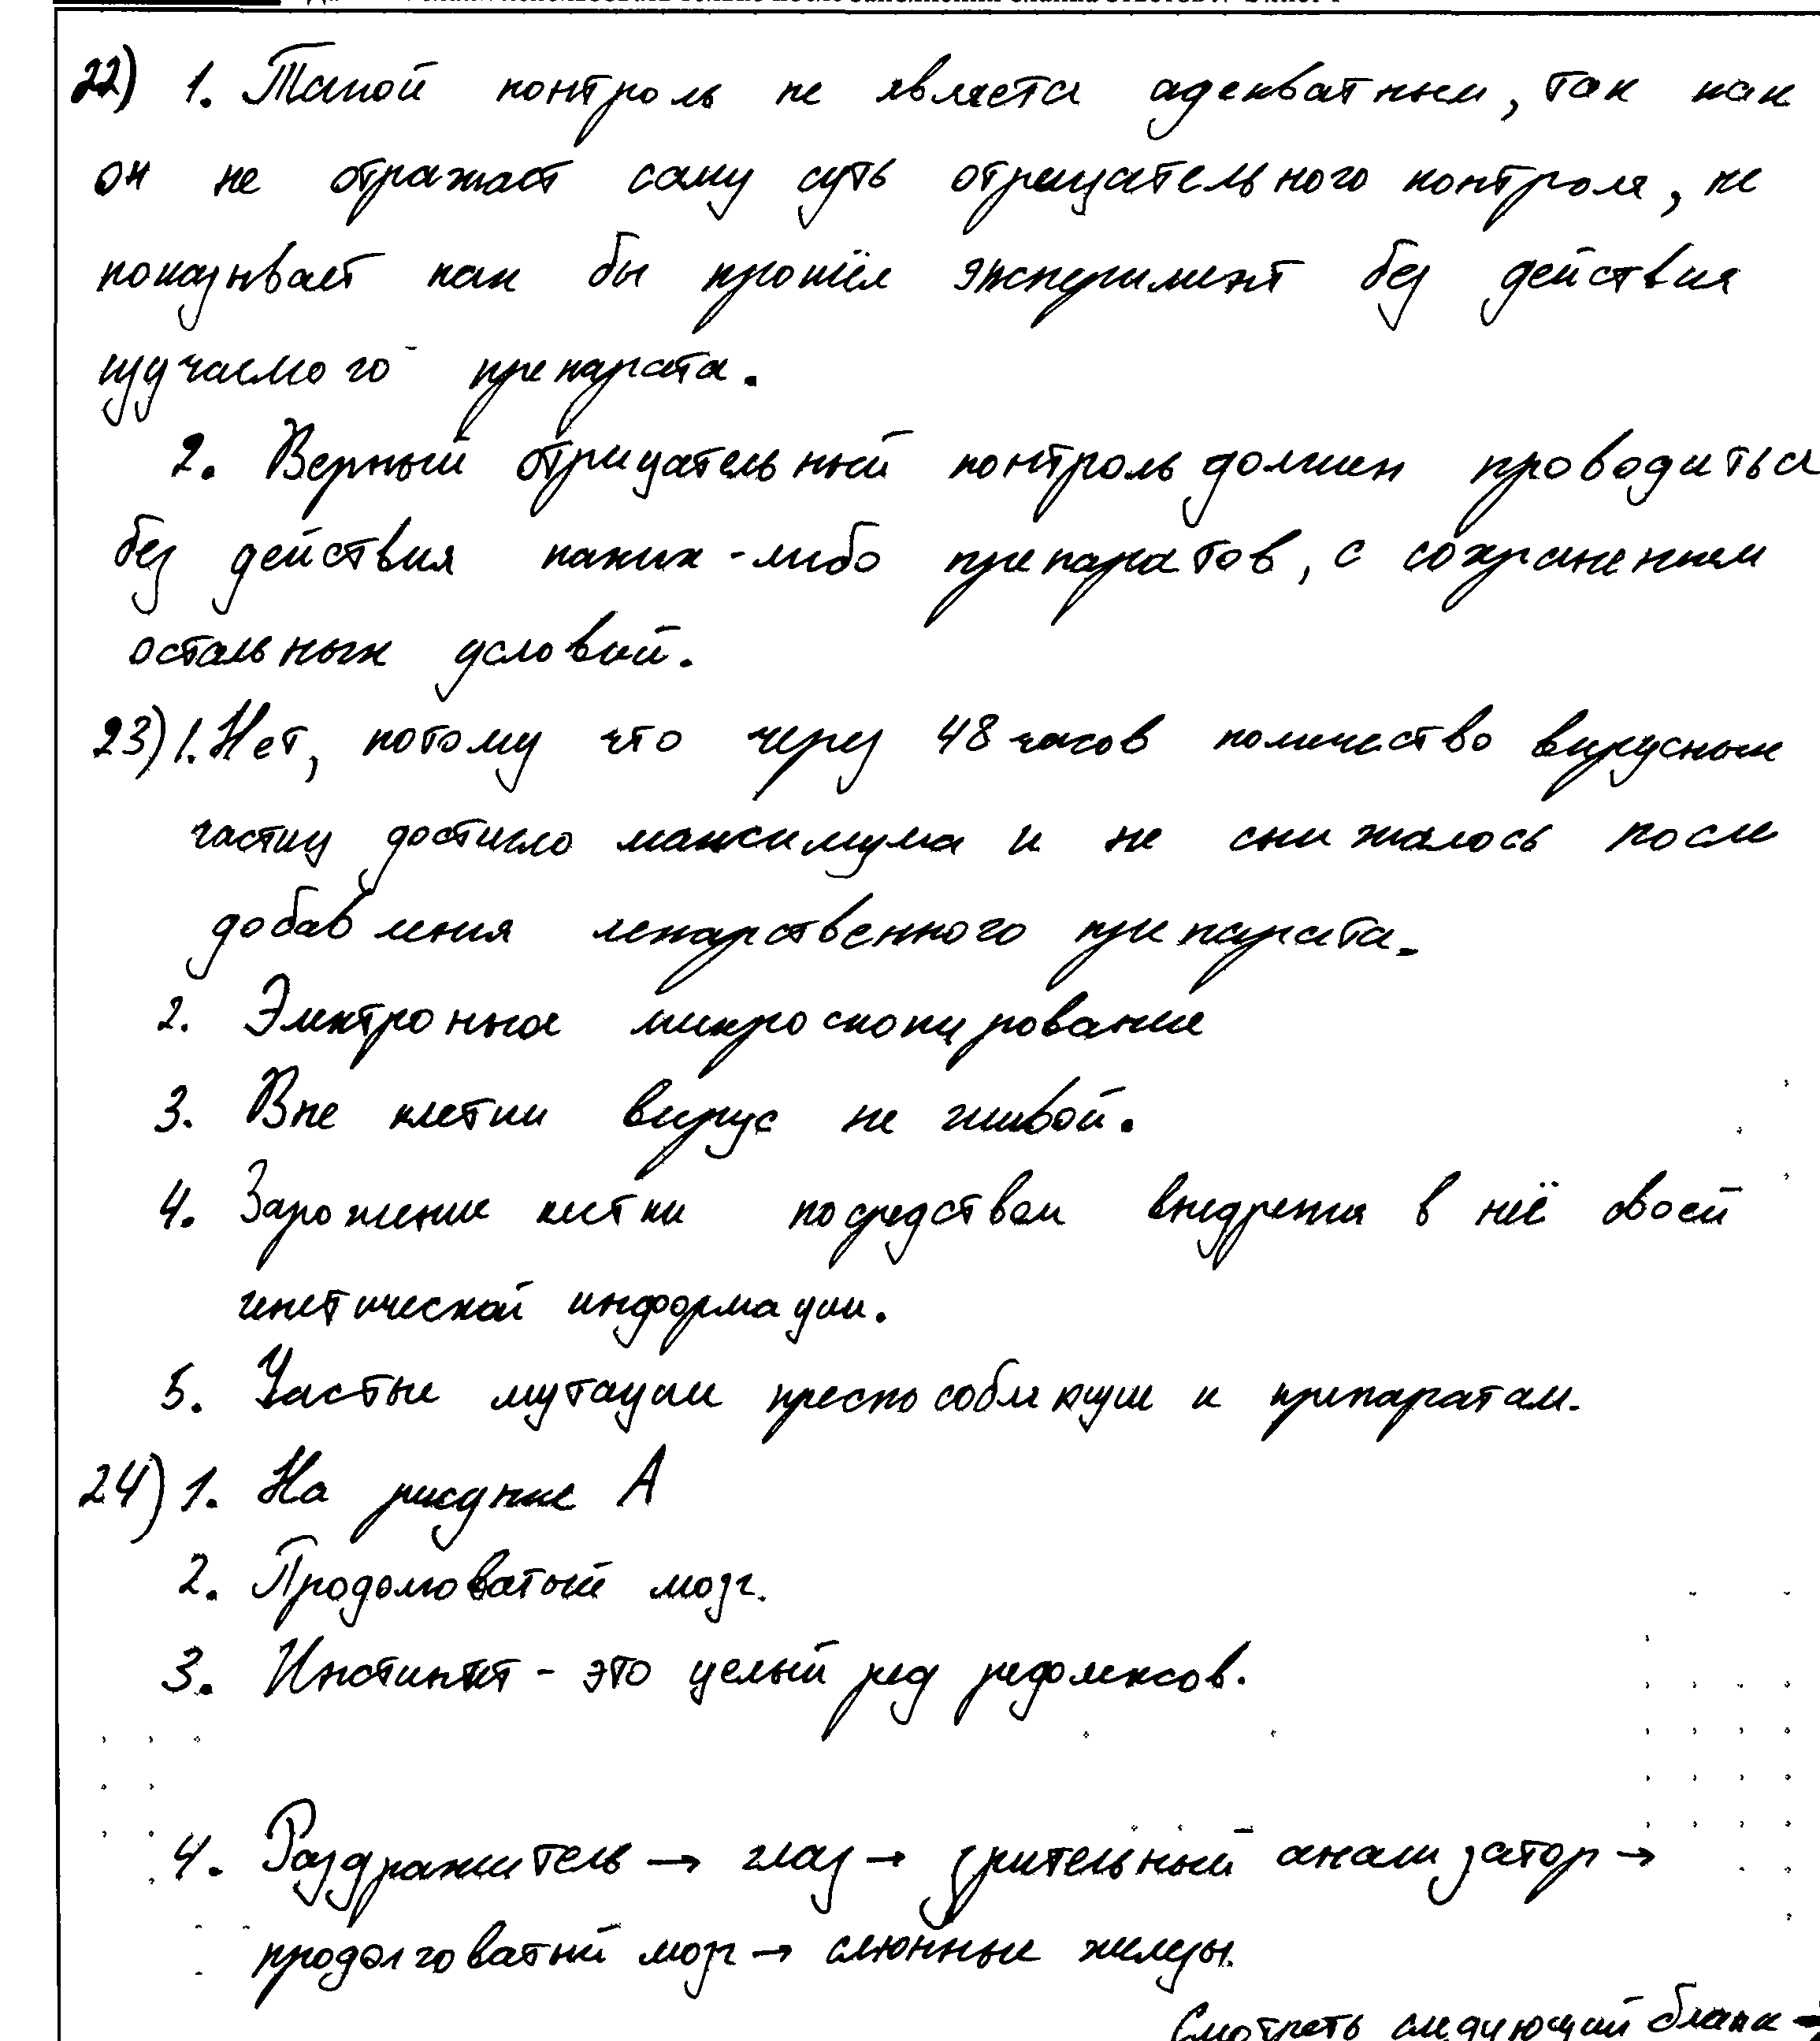 22) 1. Такой контроль не является адекватным, так как
он не отражает саму суть отрицательного контроля, не
показывает как бы прошёл эксперимент без действия
изучаемого препарата.
2. Верный отрицательный контроль должен проводиться
без действия каких-либо препаратов, с сохранением
остальных условий.
23) 1. Нет, потому что через 48 часов количество вирусных
частиц достигло максимума и не снижалось после
добавления лекарственного препарата.
2. Электроное микроскопирование
3. Вне клетки вирус не живой.
4. Заражение клетки посредствам внедрения в неё своей
генетической информации.
5. Частые мутации преспособляющие к препаратам.
24) 1. На рисунке А
2. Продолговатый мозг.
3. Инстинкт - это целый ряд рефлексов.
4. Раздражитель → глаз → зрительный анализатор →
продолговатый мозг → слюнные железы.
Смотреть следующий бланк →